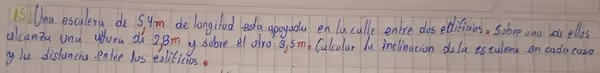 15. Una escalera de 5,4m de longitud esta apoyada en la calle entre dos edificios. Sobre uno de ellos
alcanza una altura de 2,8m y sobre el otro 3,5m. Calcular la inclinacion de la escalera en cada caso
y la distancia entre los edificios.